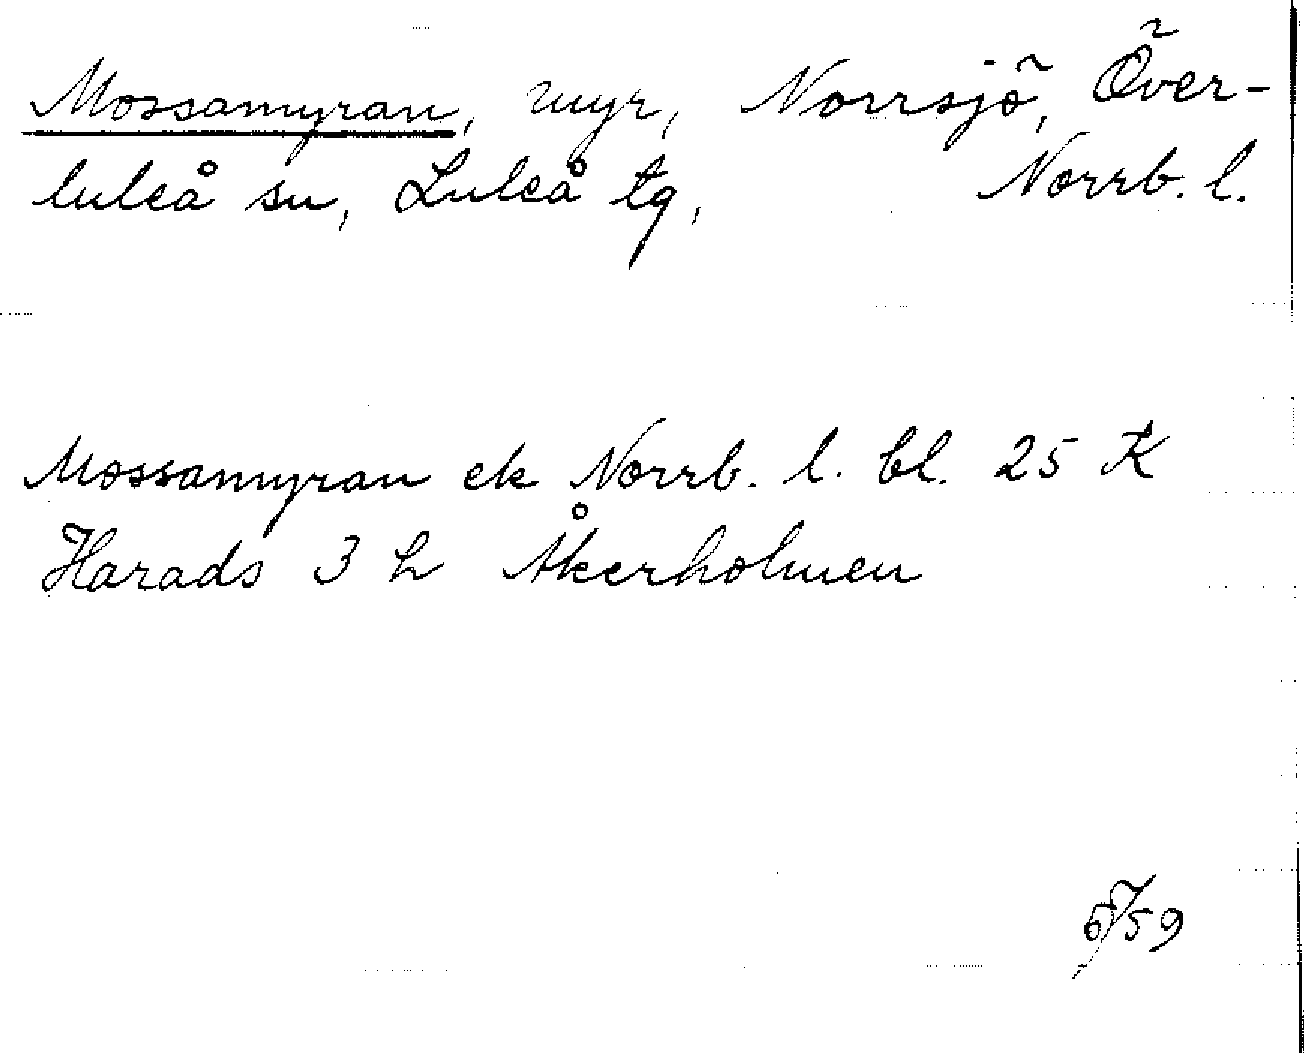 Mossamyran, myr, Norrsjö, Över-
luleå sn, Luleå tg, Norrb. l.
Mossamyran ek Norrb. l. bl. 25 K
Harads 3 h Åkerholmen